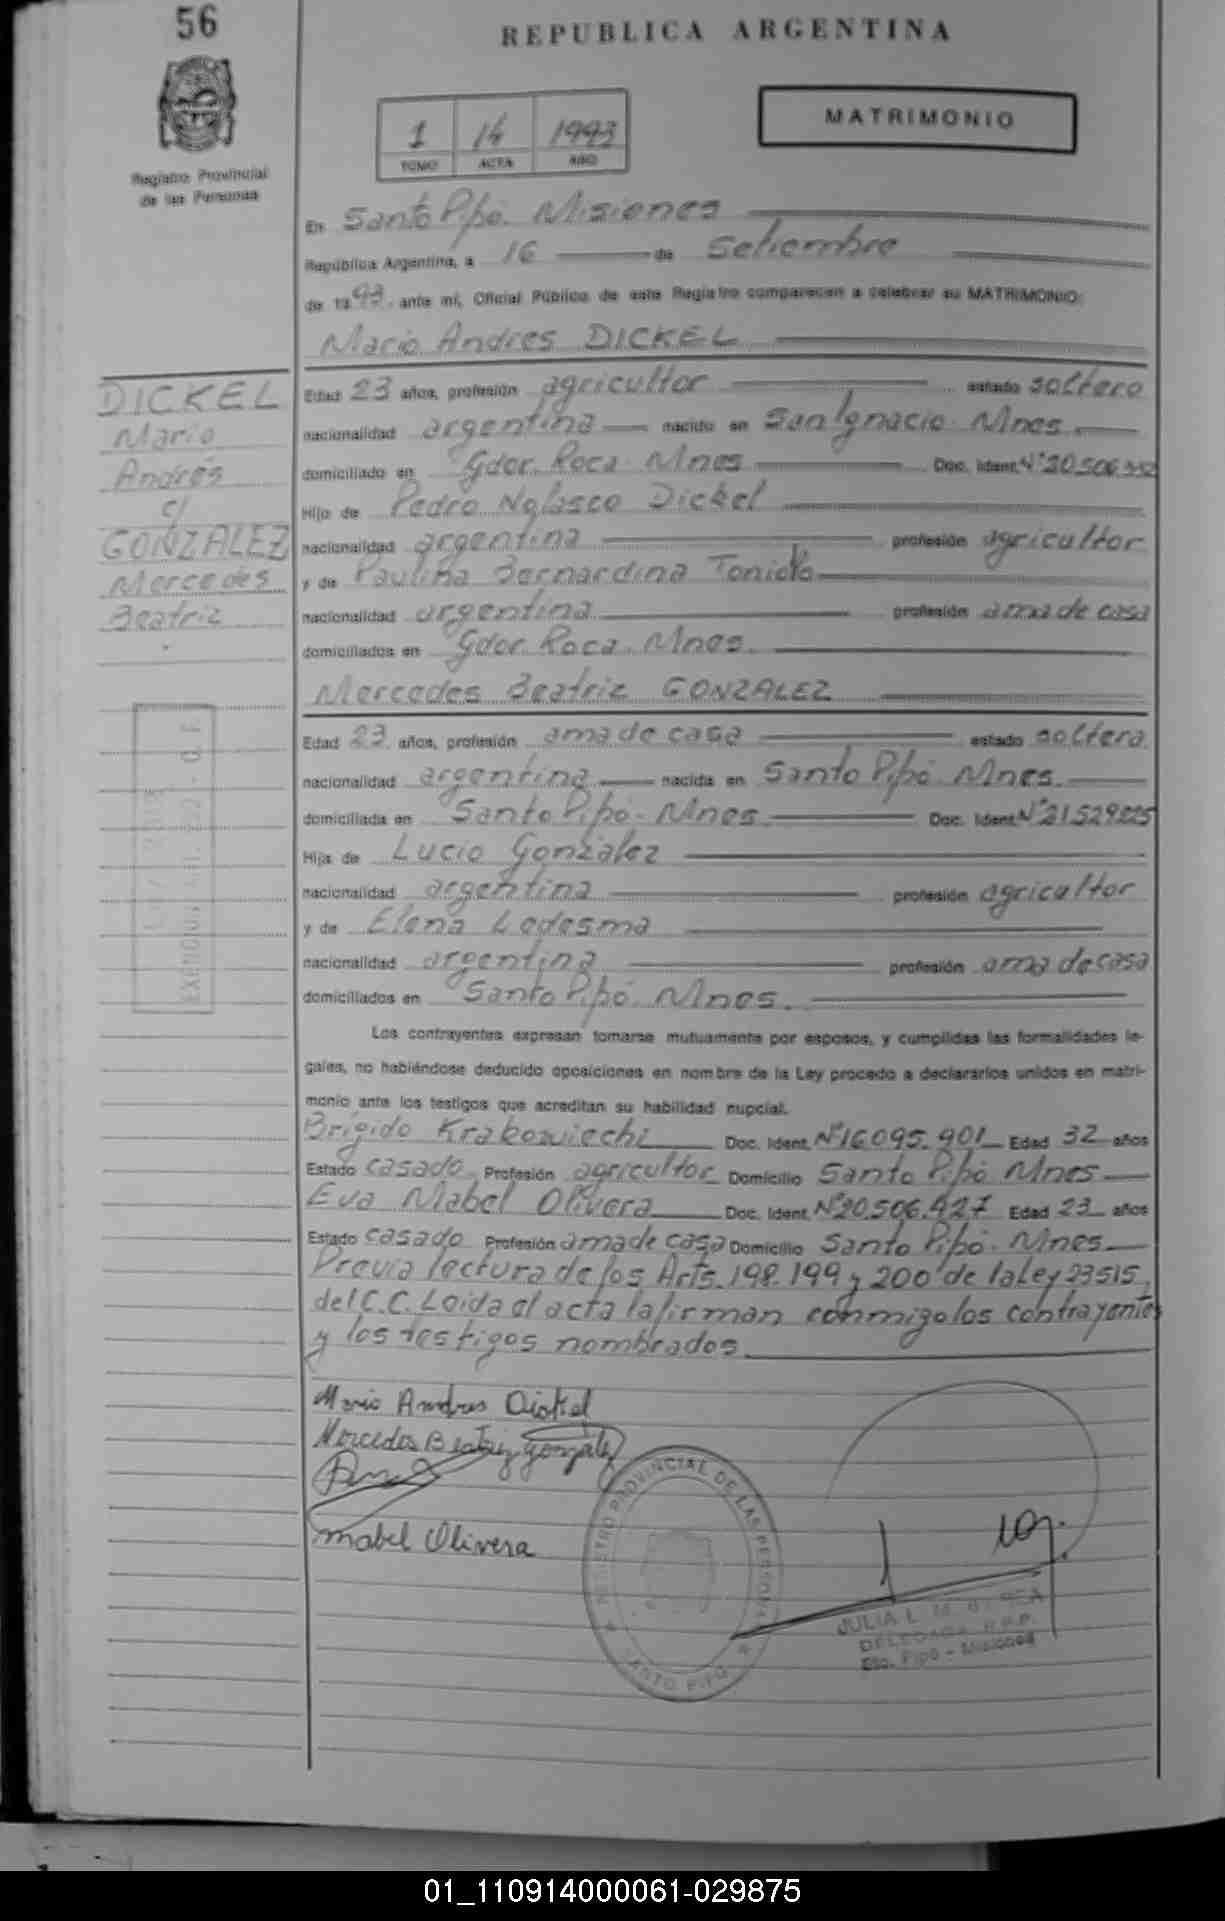 56
REPUBLICA ARGENTINA
Registro Provincial
de las Personas
1 14 1993
TOMO ACTA AÑO
MATRIMONIO
En Santo Pipó. Misiones
República Argentina, a 16 de Setiembre
de 1993. ante mi, Oficial Público de este Registro comparecen a celebrar su MATRIMONIO:
Mario Andres DICKEL
DICKEL
Mario
Andrés
c/
GONZALEZ
Mercedes
Beatriz
Edad 23 años, profesión agricultor estado soltero
nacionalidad argentina nacido en San Ignacio. Mnes.
domiciliado en Gdor. Roca. Mnes Doc. Ident. Nº 20.506.
Hijo de Pedro Nolasco Dickel
nacionalidad argentina profesión agricultor
y de Paulina Bernardina
nacionalidad argentina profesión ama de casa
domiciliados en Gdor. Roca. Mnes.
Mercedes Beatriz GONZALEZ
Edad 23 años, profesión ama de casa estado soltera
nacionalidad argentina nacida en Santo Pipó Mnes.
domiciliada en Santo Pipó. Mnes. Doc. Ident. Nº 21.529.
Hija de Lucio González
nacionalidad argentina profesión agricultor
y de Elena Ledesma
nacionalidad argentina profesión ama de casa
domiciliados en Santo Pipó. Mnes.
Los contrayentes expresan tomarse mutuamente por esposos, y cumplidas las formalidades le-
gales, no habiéndose deducido oposiciones en nombre de la Ley procedo a declararlos unidos en matri-
monio ante los testigos que acreditan su habilidad nupcial.
Brígido Krabowiechi Doc. Ident. Nº 16.095.901 Edad 32 años
Estado casado Profesión agricultor Domicilio Santo Pipó Mnes
Eva Mabel Olivera Doc. Ident. Nº 20.506.427 Edad 23 años
Estado casado Profesión ama de casa Domicilio Santo Pipó. Mnes.
Previa lectura de los Arts. 198. 199 y 200 de la Ley 23515
del C.C. Loida el acta la firman conmigo los contrayentes
y los testigos nombrados.
Mario Andres Dickel
Mercedes Beatriz González
Mabel Olivera
REGISTRO PROVINCIAL DE LAS PERSONAS
SANTO PIPO
JULIA L. M.
DELEGADA R.P.P.
Sto. Pipó - Misiones
01_110914000061-029875